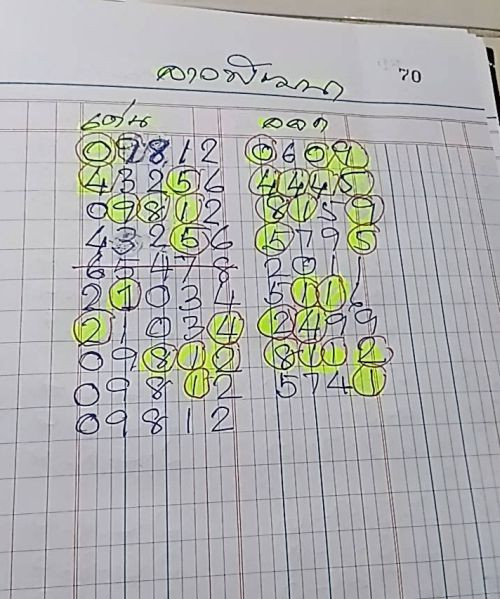 70
ลาวพัฒนา
เด่น ออก
09812 0609
43256 4445
09812 8159
43256 5795
65478 2011
21034 5111
21034 2499
09812 8112
09812 5741
09812